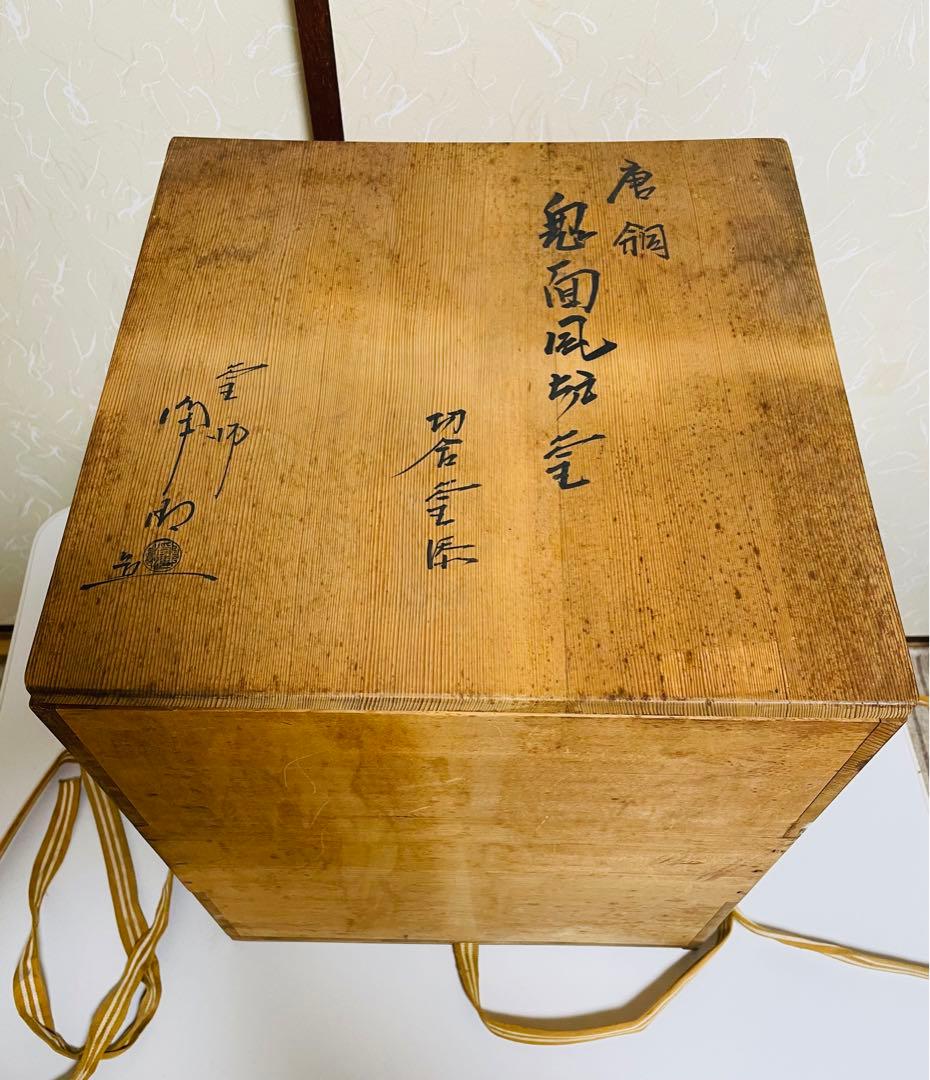 唐銅
鬼面風炉釜
切合釜添
釜師
造